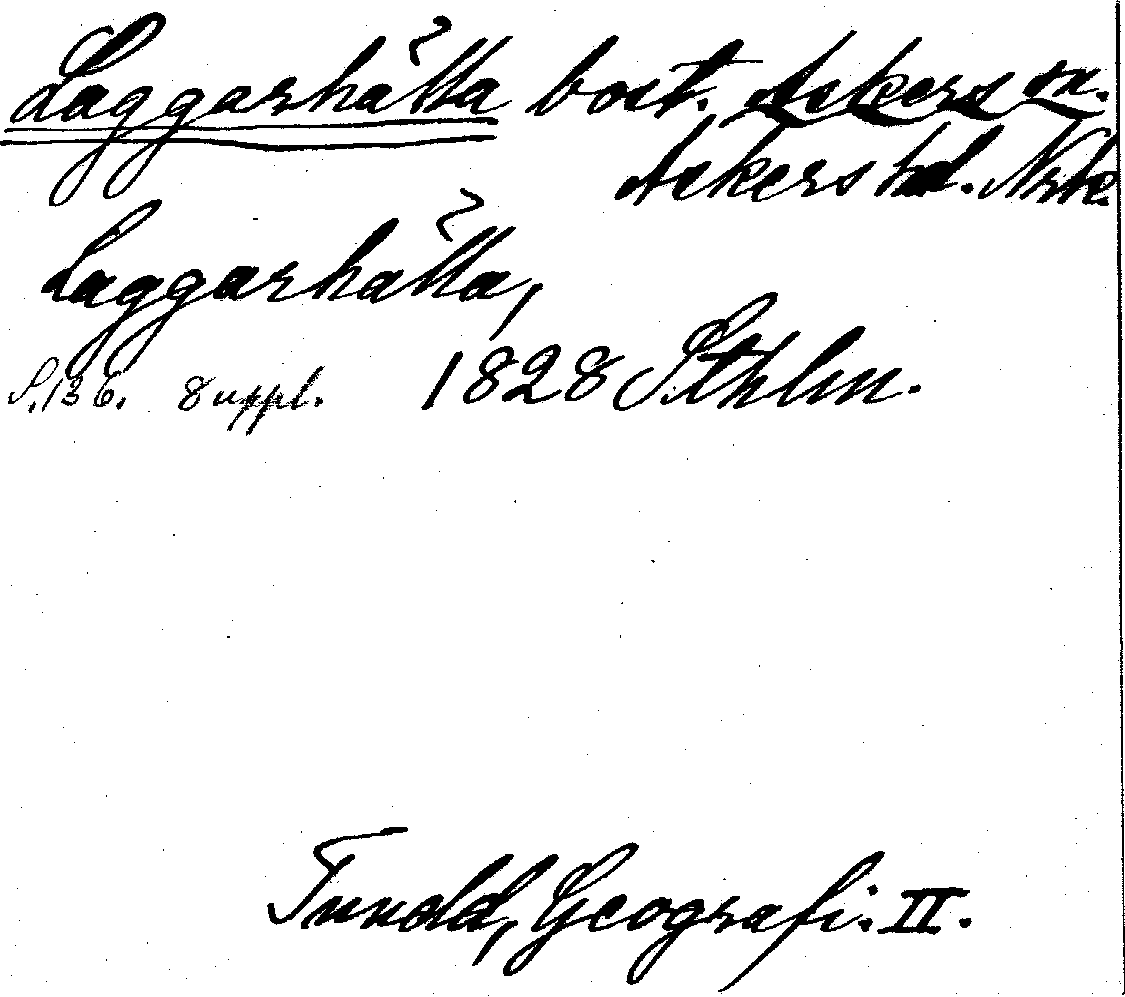 Laggarhåtta bost. Askers sn.
Askers hd. Nrk.
Laggarhåtta,
S. 136. Suppl. 1828 Sthlm.
Tuneld, Geografi. II.